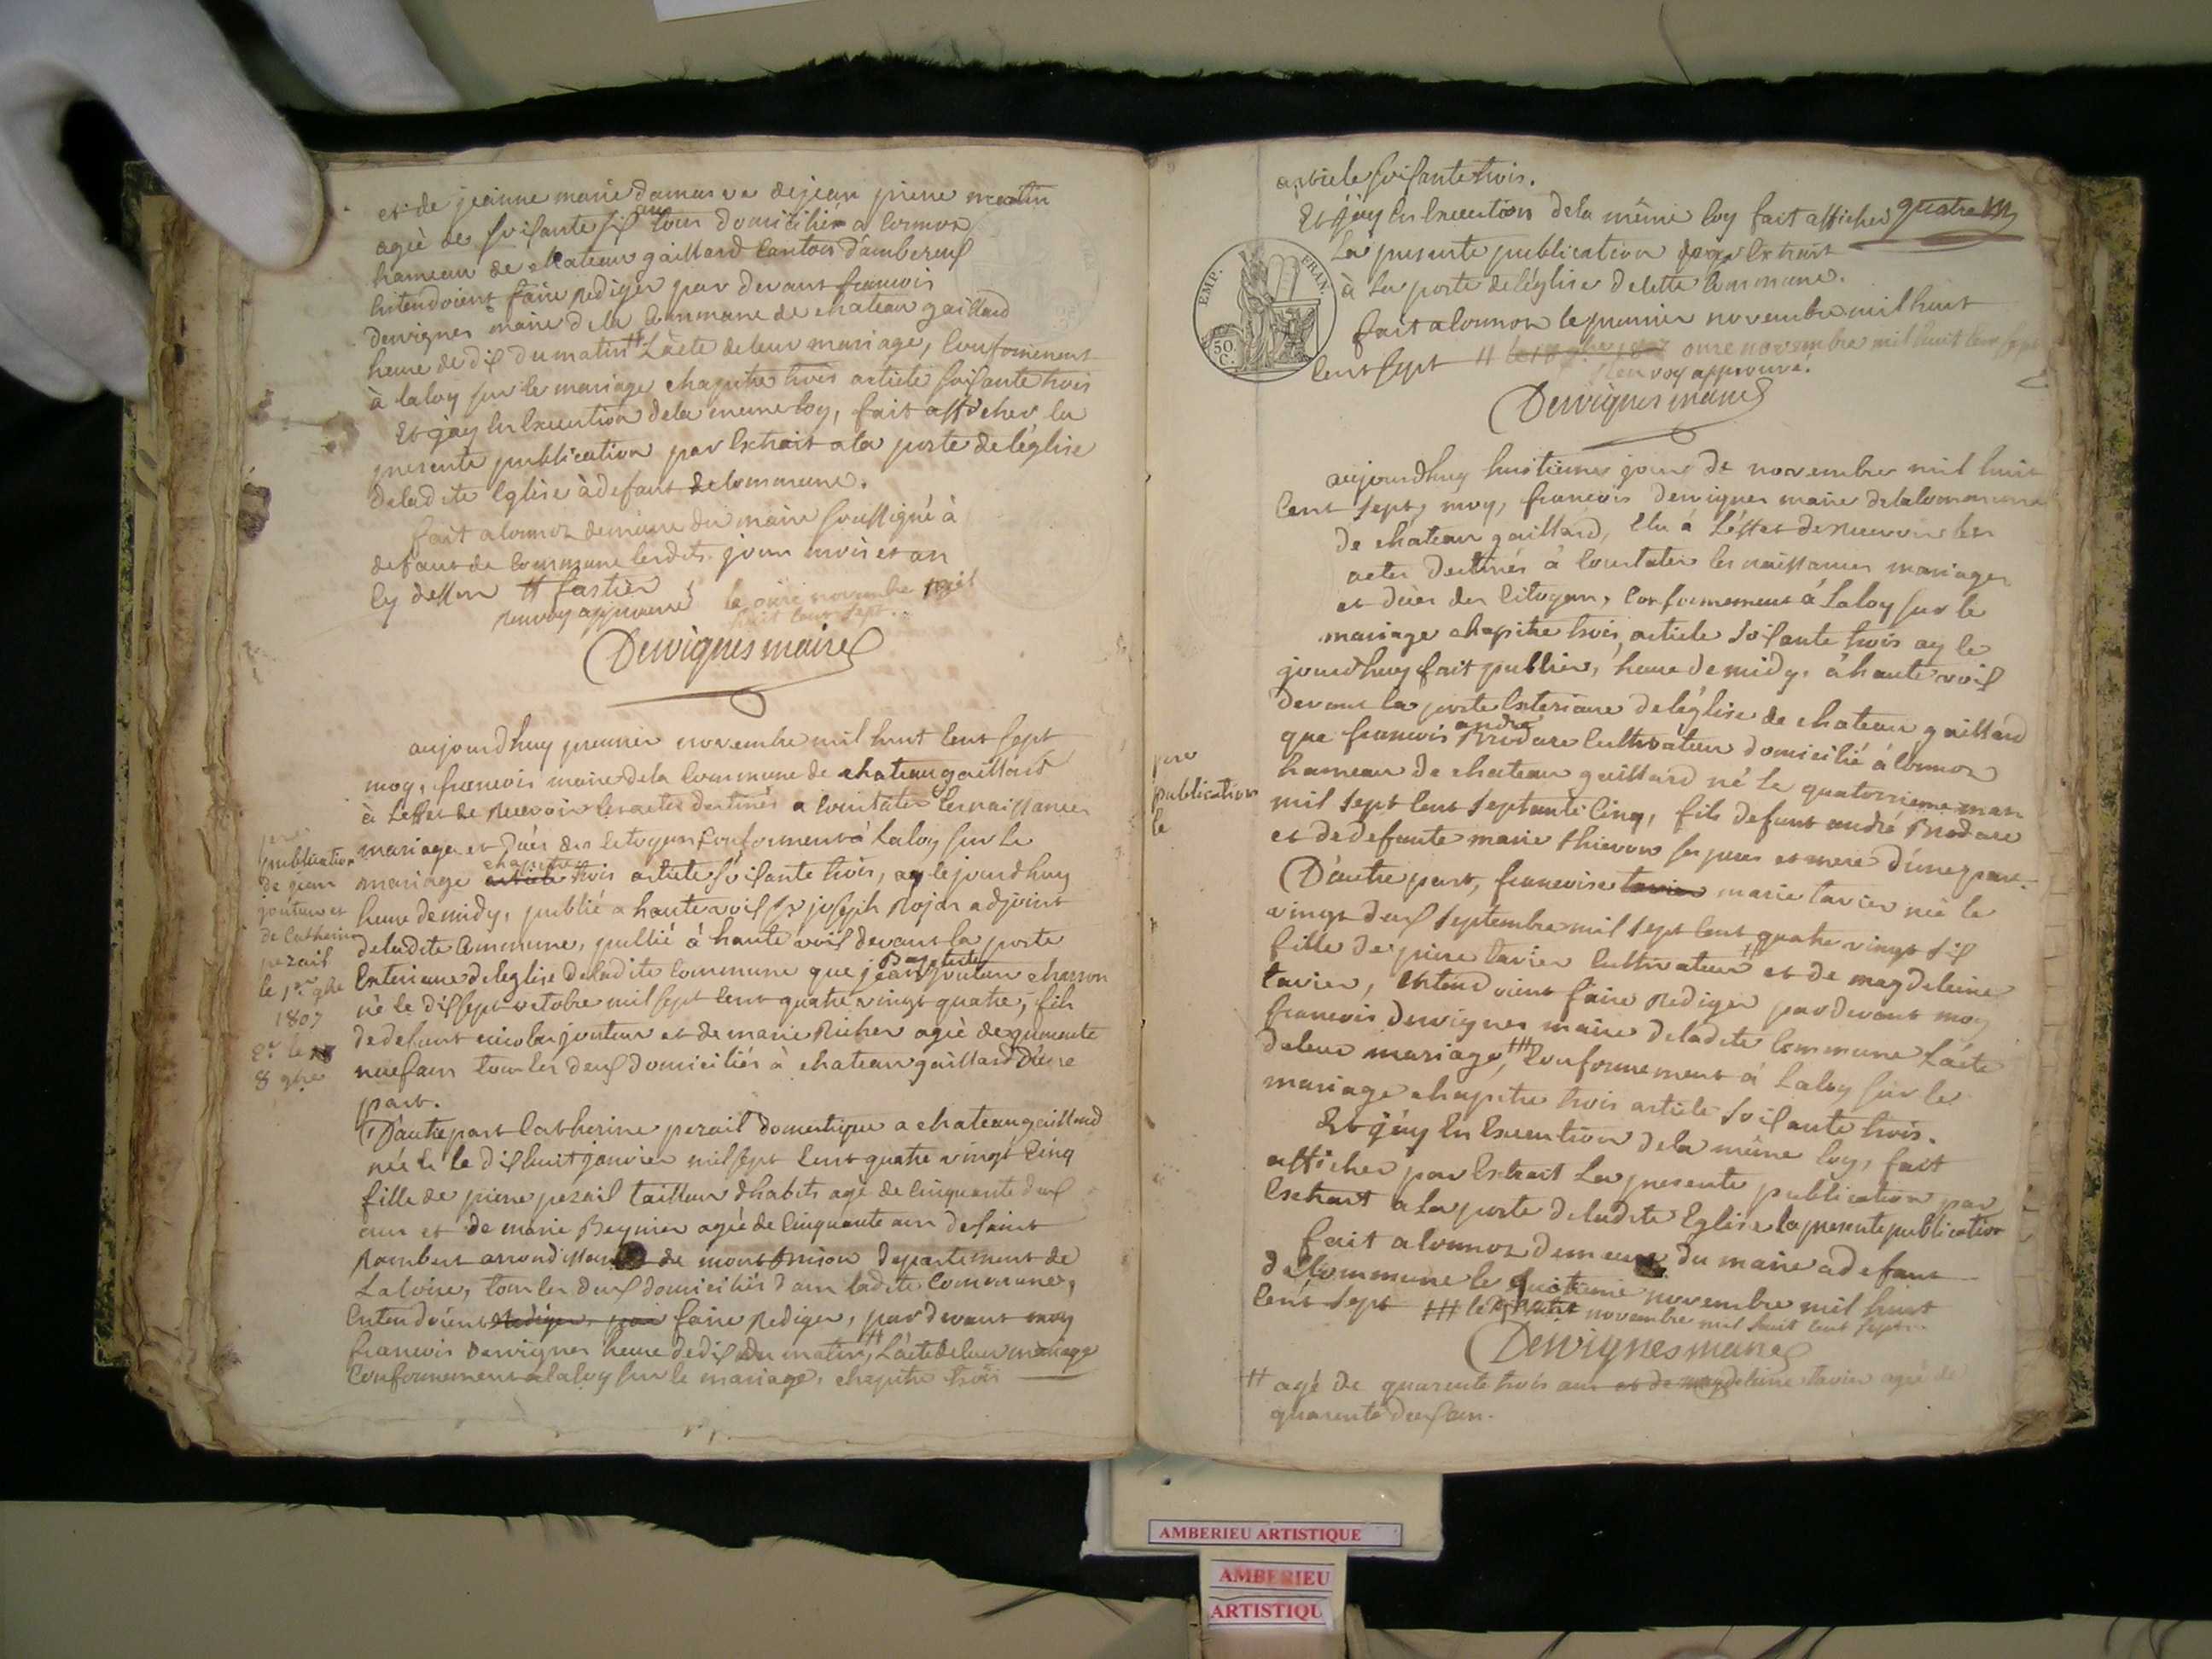 et de jeanne marie damas ve de jean pierre martin
agée de soisante six ans tous domiciliés a cormoz
hameau de chateau gaillard canton d'ambereux
entendoient faire rediger par devant francois
dervignes maire de la commune de chateau gaillard
heure de dix du matin # L'acte de leur mariage, conformement
à la loy sur le mariage chapitre trois article soisante trois
Et j'ay en execution de la meme loy, fait afficher la
presente publication par extrait a la porte de l'église
de la dite eglise à defaut de commune.
fait a cormoz demeure du maire soussigné à
defaut de commune lesdits jour mois et an
cy dessus
renvoy approuvé le onze novembre mil
huit cent sept
Dervignes maire
aujourdhuy premier novembre mil huit cent sept
moy, francois maire de la commune de chateau gaillard
à l'effet de recevoir les actes destinés a constater les naissances
mariages et décès des citoyens conformement à la loy sur le
mariage article chapitre trois article soisante trois, ay le jourdhuy
heure de midy, publié a haute voix joseph rojon adjoint
de ladite commune, publié à haute voix devant la porte
exterieure de leglise de ladite commune que jean Baptiste jouteur
né le dix sept octobre mil sept cent quatre vingt quatre, fils
de defunt nicolas jouteur et de marie Richer agée de quarente
neuf ans tous les deux domiciliés à chateau gaillard D'une
part.
D'autre part Catherine perail domestique a chateau gaillard
née le dix huit janvier mil sept cent quatre vingt cinq
fille de pierre perail tailleur d'habits agé de cinquante deux
ans et de marie Reynier agée de cinquante ans de saint
Rambert de montbrison departement de
La loire, tous les deux domiciliés dans ladite commune,
entendoient faire rediger, par devant moy
francois dervignes heure de dix du matin, # L'acte de leur mariage
conformement a la loy sur le mariage, chapitre trois
1ere
publication
de jean
jouteur et
de Catherine
perail
le 1er 9bre
1807
2e le
8 9bre
article soisante trois.
Et j'ay en execution de la même loy fait afficher
La presente publication par extrait
à la porte de l'église de cette commune.
fait a cormoz le premier novembre mil huit
cent sept # onze novembre mil huit cent sept
renvoy approuvé.
Dervignes maire
EMP. FRAN.
50 C.
aujourdhuy huitieme jour de novembre mil huit
cent sept, moy, francois dervignes maire de la commune
de chateau gaillard, élu à l'effet de recevoir les
actes destinés à constater les naissances mariages
et décès des citoyens, conformement à la loy sur le
mariage chapitre trois article soisante trois ay le
jourdhuy fait publier, heure de midy, à haute voix
devant la porte exterieure de l'église de chateau gaillard
que francois andré Brodare cultivateur domicilié à cormoz
hameau de chateau gaillard né le quatorzieme mars
mil sept cent septante cinq, fils defunt andré Brodare
et de defunte marie thievon ses pere et mere d'une part.
D'autre part, francoise tavier marie tavier née le
vingt deux septembre mil sept cent quatre vingt six
fille de pierre tavier cultivateur # et de magdeleine
tavier, entendoient faire rediger par devant moy
francois dervignes maire de ladite commune L'acte
de leur mariage, ### conformement à la loy sur le
mariage chapitre trois article soisante trois.
Et j'ay en execution de la même loy, fait
afficher par extrait la presente publication par
extrait a la porte de ladite eglise la presente publication
fait a cormoz demeure du maire a defaut
de commune le huitieme novembre mil huit
cent sept ### novembre mil huit cent sept.
Dervignes maire
# agé de quarente trois ans et de magdeleine tavier agée de
quarente deux ans.
1ere
publication
le
AMBERIEU ARTISTIQUE
AMBERIEU
ARTISTIQU